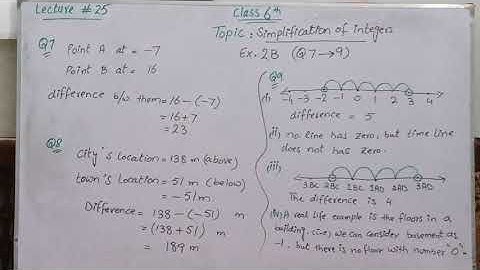 Lecture #25
Class 6th
Topic: Simplification of integers
Ex. 2B (Q7→9)
Q7 Point A at = -7
Point B at = 16
difference b/w them = 16 - (-7)
= 16+7
= 23
Q8
City's location = 138 m (above)
town's Location = 51 m (below)
= -51 m
Difference = 138 - (-51) m
= (138 + 51) m
= 189 m
Q9
(i)
-4 -3 -2 -1 0 1 2 3 4
difference = 5
(ii) no. line has zero, but time line
does not has zero.
(iii)
3BC 2BC 1BC 1AD 2AD 3AD
The difference is 4
(iv) A real life example is the floors in a
building, we can consider basement as
-1, but there is no floor with number "0".